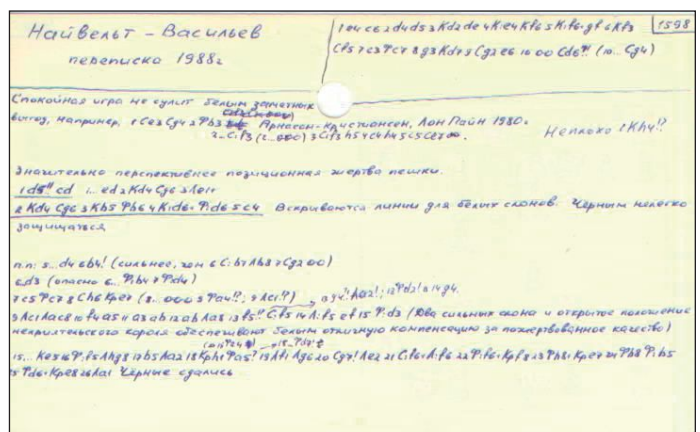 Найвельт - Васильев
переписка 1988г
1 e4 c6 2 d4 d5 3 Kd2 de 4 K:e4 Kf6 5 K:f6+ gf 6 Kf3
Cf5 7 c3 Фc7 8 g3 Kd7 9 Cg2 e6 10 00 Cd6?! (10... Cg4)
1598
Спокойная игра не сулит белым заметных
выгод, например, 1 Ce3 Cg4 2 Фb3 Арнасон-Кристиансен, Лон Пайн 1980г.
2...C:f3 (2...000) 3 C:f3 h5 4 c4 h4 5 c5 Ce7 ∞.
Неплохо 1 Kh4!?
Значительно перспективнее позиционная жертва пешки.
1 d5!! cd 1... ed 2 Kd4 Cg6 3 Ле1+
2 Kd4 Cg6 3 Kb5 Фb6 4 K:d6+ Ф:d6 5 c4 Вскрываются линии для белых слонов. Чёрным нелегко
защищаться
п.п: 5... d4 6 b4! (сильнее, чем 6 C:b7 Лb8 7 Cg2 00)
6 d3 (опасно 6... Ф:b4 7 Ф:d4)
7 c5 Фc7 8 Ch6 Kpe7 (8... 000 9 Фa4!?; 9 Лc1!?)
(Два сильных слона и открытое положение
неприятельского короля обеспечивают белым отличную компенсацию за пожертвованное качество)
15... Ke5 16 Ф:f5 Лhg8 17 b5 Лa2 18 Kph1 Фa5? 19 Лf1 Лg6 20 Cg7! Лe2 21 C:f6+ Л:f6 22 Ф:f6+ Kpf8 23 Фh8+ Kpe7 24 Фb8 Ф:b5
25 Фd6+ Kpe8 26 Лa1 Чёрные сдались